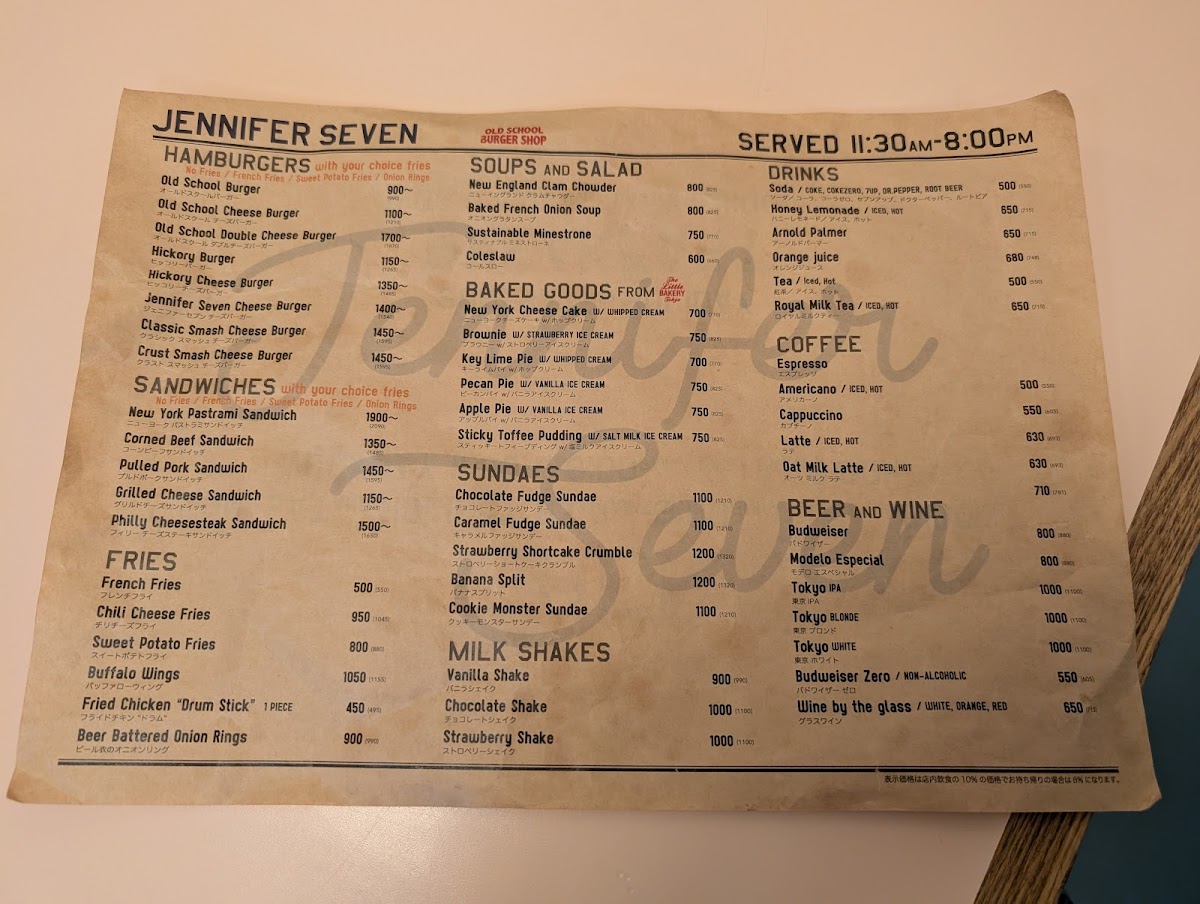 JENNIFER SEVEN
OLD SCHOOL
BURGER SHOP
SERVED 11:30AM-8:00PM
HAMBURGERS with your choice fries
No Fries / French Fries / Sweet Potato Fries / Onion Rings
Old School Burger 900～
オールドスクールバーガー (990)
Old School Cheese Burger 1100～
オールドスクール チーズバーガー (1210)
Old School Double Cheese Burger 1700～
オールドスクール ダブルチーズバーガー (1870)
Hickory Burger 1150～
ヒッコリーバーガー (1265)
Hickory Cheese Burger 1350～
ヒッコリーチーズバーガー (1485)
Jennifer Seven Cheese Burger 1400～
ジェニファーセブン チーズバーガー (1540)
Classic Smash Cheese Burger 1450～
クラシック スマッシュ チーズバーガー (1595)
Crust Smash Cheese Burger 1450～
クラスト スマッシュ チーズバーガー (1595)
SANDWICHES with your choice fries
No Fries / French Fries / Sweet Potato Fries / Onion Rings
New York Pastrami Sandwich 1900～
ニューヨーク パストラミサンドイッチ (2090)
Corned Beef Sandwich 1350～
コーンビーフサンドイッチ (1485)
Pulled Pork Sandwich 1450～
プルドポークサンドイッチ (1595)
Grilled Cheese Sandwich 1150～
グリルドチーズサンドイッチ (1265)
Philly Cheesesteak Sandwich 1500～
フィリー チーズステーキサンドイッチ (1650)
FRIES
French Fries 500 (550)
フレンチフライ
Chili Cheese Fries 950 (1045)
チリチーズフライ
Sweet Potato Fries 800 (880)
スイートポテトフライ
Buffalo Wings 1050 (1155)
バッファローウィング
Fried Chicken “Drum Stick” 1 PIECE 450 (495)
フライドチキン “ドラム”
Beer Battered Onion Rings 900 (990)
ビール衣のオニオンリング
SOUPS AND SALAD
New England Clam Chowder 800
ニューイングランド クラムチャウダー
Baked French Onion Soup 800
オニオングラタンスープ
Sustainable Minestrone 750
サスティナブル ミネストローネ
Coleslaw 600
コールスロー
BAKED GOODS FROM The Little BAKERY Tokyo
New York Cheese Cake W/ WHIPPED CREAM 700 (770)
ニューヨークチーズケーキ w/ホップクリーム
Brownie W/ STRAWBERRY ICE CREAM 750 (825)
ブラウニー w/ストロベリーアイスクリーム
Key Lime Pie W/ WHIPPED CREAM 700 (770)
キーライムパイ w/ホップクリーム
Pecan Pie W/ VANILLA ICE CREAM 750 (825)
ピーカンパイ w/バニラアイスクリーム
Apple Pie W/ VANILLA ICE CREAM 750 (825)
アップルパイ w/バニラアイスクリーム
Sticky Toffee Pudding W/ SALT MILK ICE CREAM 750 (825)
スティッキートフィープディング w/塩ミルクアイスクリーム
SUNDAES
Chocolate Fudge Sundae 1100 (1210)
チョコレートファッジサンデー
Caramel Fudge Sundae 1100 (1210)
キャラメルファッジサンデー
Strawberry Shortcake Crumble 1200 (1320)
ストロベリーショートケーキクランブル
Banana Split 1200 (1320)
バナナスプリット
Cookie Monster Sundae 1100 (1210)
クッキーモンスターサンデー
MILK SHAKES
Vanilla Shake 900 (990)
バニラシェイク
Chocolate Shake 1000 (1100)
チョコレートシェイク
Strawberry Shake 1000 (1100)
ストロベリーシェイク
DRINKS
Soda / COKE, COKEZERO, 7UP, DR.PEPPER, ROOT BEER 500 (550)
ソーダ / コーラ、コーラゼロ、セブンアップ、ドクターペッパー、ルートビア
Honey Lemonade / ICED, HOT 650 (715)
ハニーレモネード / アイス、ホット
Arnold Palmer 650 (715)
アーノルドパーマー
Orange juice 680 (748)
オレンジジュース
Tea / ICED, HOT 500 (550)
紅茶 / アイス、ホット
Royal Milk Tea / ICED, HOT 650 (715)
ロイヤルミルクティー
COFFEE
Espresso
エスプレッソ
Americano / ICED, HOT 500 (550)
アメリカーノ
Cappuccino 550 (605)
カプチーノ
Latte / ICED, HOT 630 (693)
ラテ
Oat Milk Latte / ICED, HOT 630 (693)
オーツ ミルク ラテ
710 (781)
BEER AND WINE
Budweiser 800 (880)
バドワイザー
Modelo Especial 800 (880)
モデロ エスペシャル
Tokyo IPA 1000 (1100)
東京 IPA
Tokyo BLONDE 1000 (1100)
東京 ブロンド
Tokyo WHITE 1000 (1100)
東京 ホワイト
Budweiser Zero / NON-ALCOHOLIC 550 (605)
バドワイザー ゼロ
Wine by the glass / WHITE, ORANGE, RED 650 (715)
グラスワイン
表示価格は店内飲食の10%の価格でお持ち帰りの場合は8%になります。
Jennifer
Seven